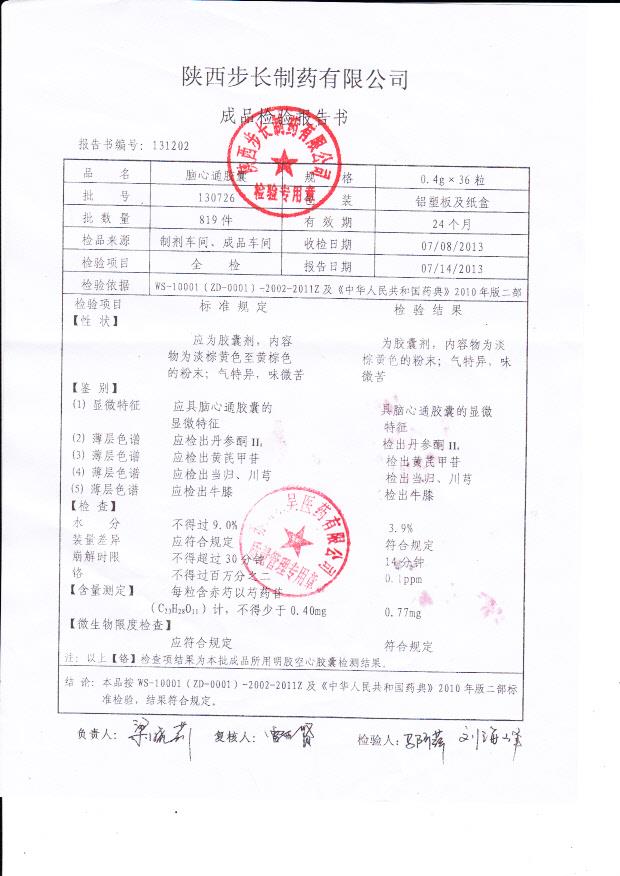 陕西步长制药有限公司
成品检验报告书
报告书编号：131202
品 名 脑心通胶囊 规 格 0.4g×36粒
批 号 130726 包 装 铝塑板及纸盒
批 数 量 819件 有 效 期 24个月
检品来源 制剂车间、成品车间 收检日期 07/08/2013
检验项目 全 检 报告日期 07/14/2013
检验依据 WS-10001（ZD-0001）-2002-2011Z及《中华人民共和国药典》2010年版二部
检验项目 标 准 规 定 检 验 结 果
【性 状】
应为胶囊剂，内容 为胶囊剂，内容物为淡
物为淡棕黄色至黄棕色 棕黄色的粉末；气特异，味
的粉末；气特异，味微苦 微苦
【鉴 别】
(1) 显微特征 应具脑心通胶囊的 具脑心通胶囊的显微
显微特征 特征
(2) 薄层色谱 应检出丹参酮II。 检出丹参酮II。
(3) 薄层色谱 应检出黄芪甲苷 检出黄芪甲苷
(4) 薄层色谱 应检出当归、川芎 检出当归、川芎
(5) 薄层色谱 应检出牛膝 检出牛膝
【检 查】
水 分 不得过9.0% 3.9%
装量差异 应符合规定 符合规定
崩解时限 不得超过30分钟 14分钟
铬 不得过百万分之二 0.1ppm
【含量测定】 每粒含赤芍以芍药苷
（C₂₃H₂₈O₁₁）计，不得少于0.40mg 0.77mg
【微生物限度检查】
应符合规定 符合规定
注：以上【铬】检查项结果为本批成品所用明胶空心胶囊检测结果。
结 论：本品按WS-10001（ZD-0001）-2002-2011Z及《中华人民共和国药典》2010年版二部标
准检验，结果符合规定。
负责人： 复核人： 检验人：
陕西步长制药有限公司
检验专用章
医药有限公司
质量管理专用章